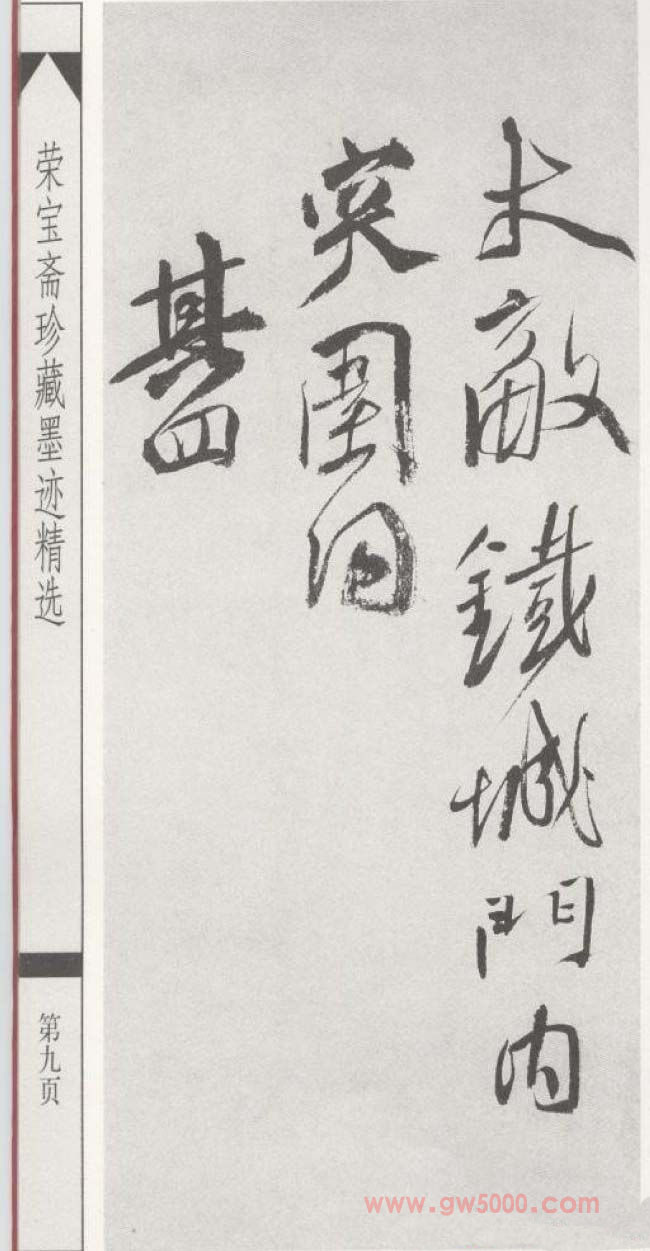 敵鐵城門内
突圍回
其四
荣宝斋珍藏墨迹精选
第九页
www.gw5000.com